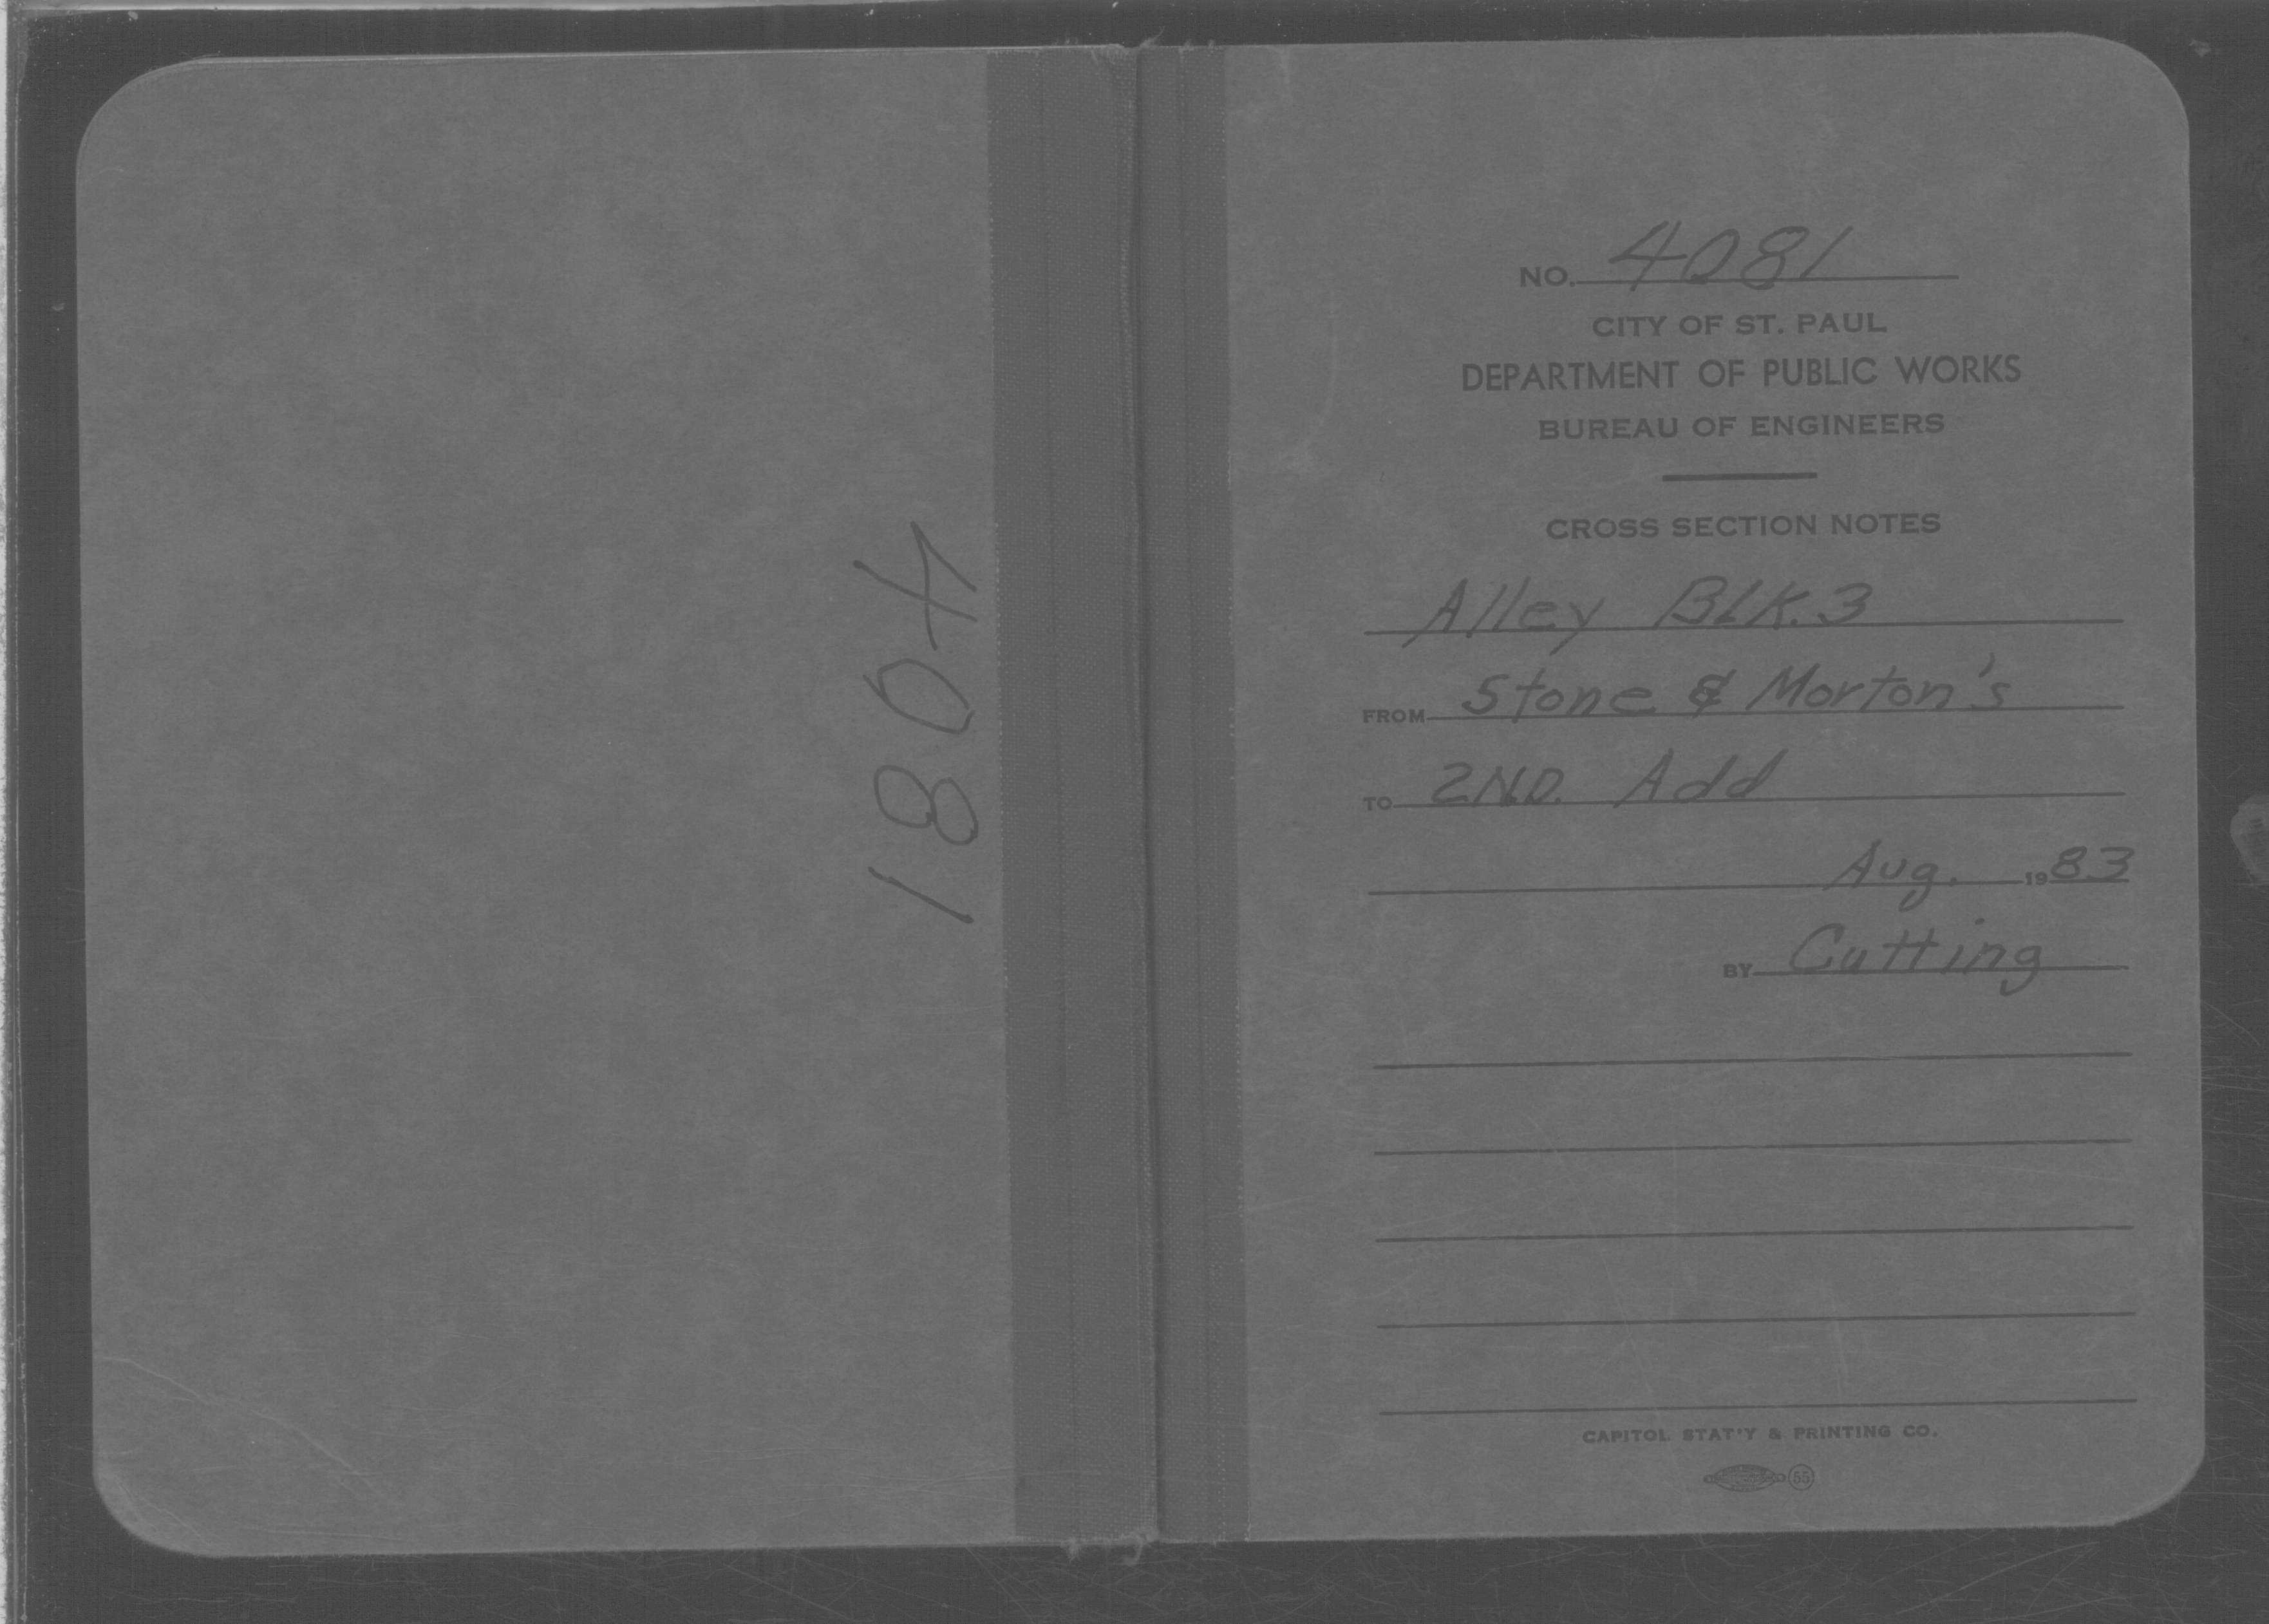 4081
NO. 4081
CITY OF ST. PAUL
DEPARTMENT OF PUBLIC WORKS
BUREAU OF ENGINEERS
CROSS SECTION NOTES
Alley BLK. 3
FROM Stone & Morton's
TO 2N.D. Add
Aug. 1983
BY Cutting
CAPITOL STAT'Y & PRINTING CO.
55